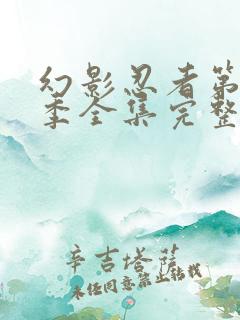 幻影忍者第
季全集完整
辛吉塔莎
未经同意禁止转载